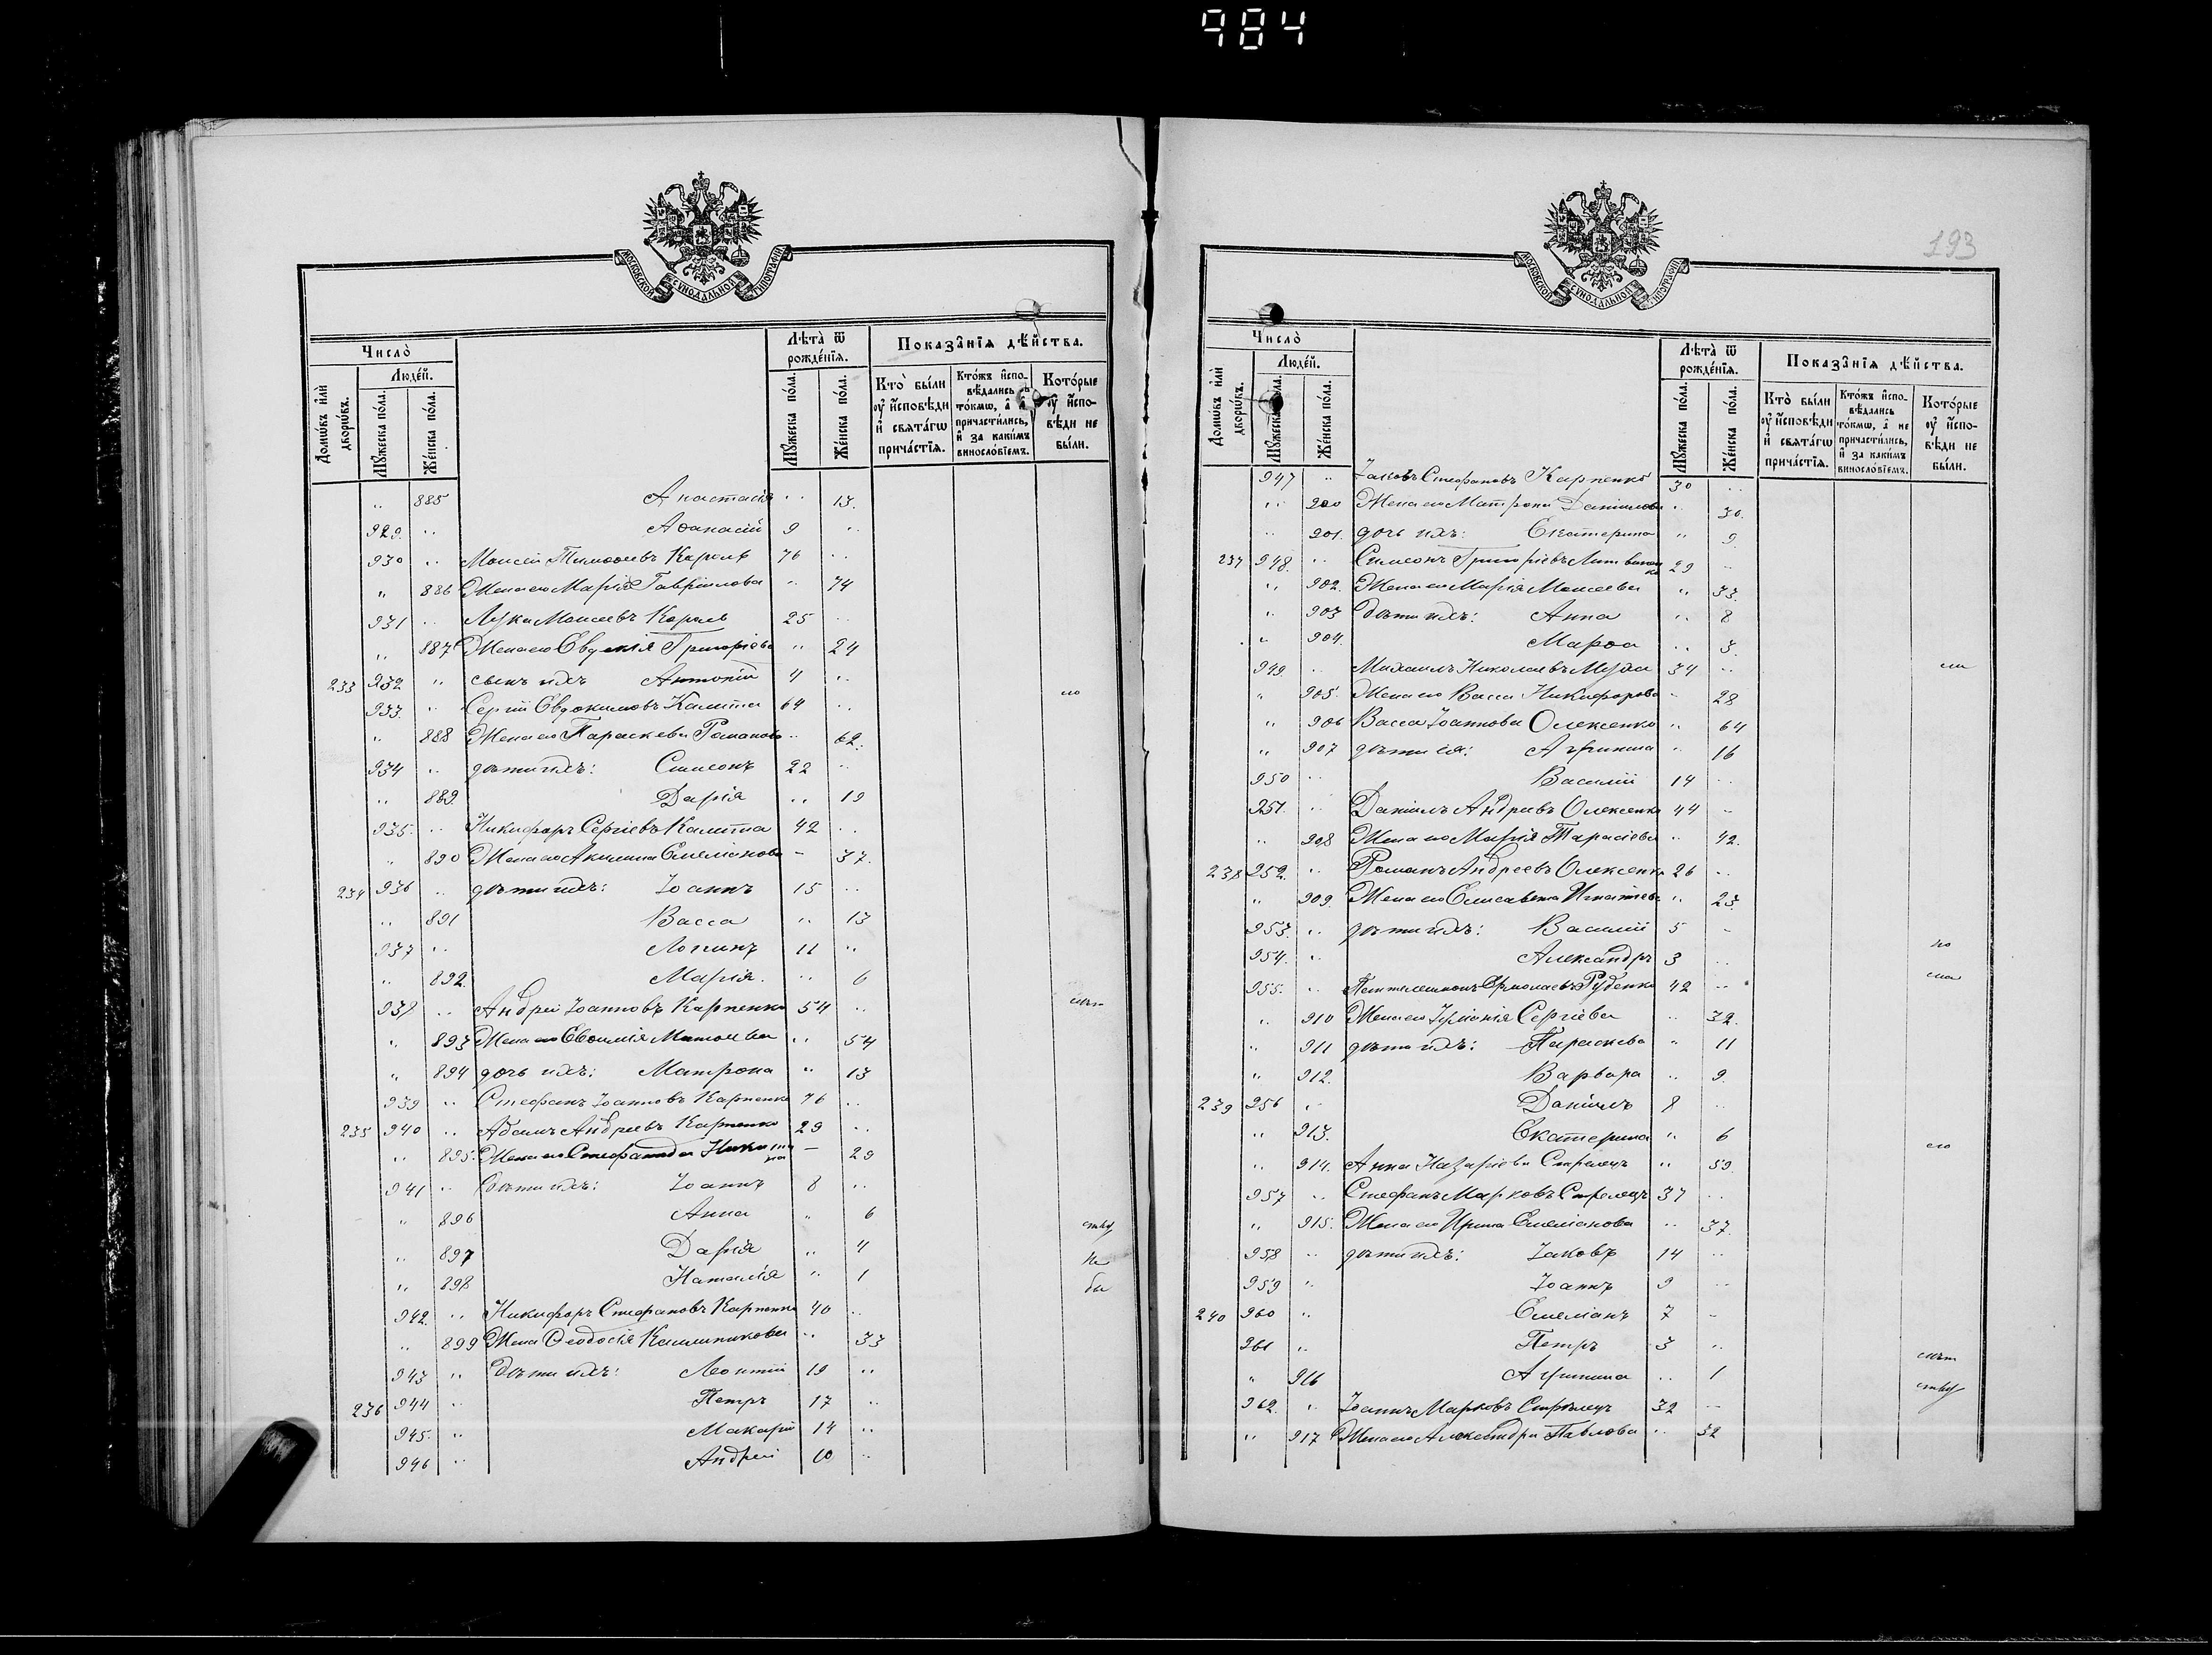 984
МОСКОВСКОЙ СѴНОДАЛЬНОЙ ТИПОГРАФІИ
Число̀
Домѡ́въ и҆лѝ дворѡ́въ.
Люде́й.
Мꙋ́жеска по́ла.
Же́нска по́ла.
Лѣ́та ѿ рожде́нїѧ.
Мꙋ́жеска по́ла.
Же́нска по́ла.
Показа̑нїѧ дѣ́йства.
Кто̀ бы́ли ᲂу҆ и҆́сповѣди и҆ свѧта́гѡ прича́стїѧ.
Кто́жъ и҆сповѣ́дались то́кмѡ, а҆ не причасти́лись, и҆ за каки́мъ винословїемъ.
Кото́рые ᲂу҆ и҆́сповѣди не бы́ли.
„ 885 Анастасія „ 13.
929. „ Аѳанасій 9 „
930 „ Моисей Тимоѳеевъ Король 76 „
„ 886 Жена его Марія Гавріилова „ 74
931 „ Лука Моисеевъ Король 25 „
„ 887 Жена его Евдокія Григоріева „ 24
233 932 „ сынъ ихъ Антоній 4 „
933. „ Сергій Евдокимовъ Калита 64 „
„ 888 Жена его Параскева Романова „ 62.
934 „ дѣти ихъ: Симеонъ 22 „
„ 889. Дарія „ 19
935. „ Никифоръ Сергіевъ Калита 42 „
„ 890 Жена его Акилина Емеліанова – 37.
234 936 „ дѣти ихъ: Іоаннъ 15 „
„ 891 Васса „ 13
937 „ Логинъ 11 „
„ 892. Марія. „ 6
938 „ Андрей Іоанновъ Карпенко 54 „
„ 893 Жена его Евѳимія „ 54
„ 894 дочь ихъ: Матрона „ 13
939 „ Стефанъ Іоанновъ Карпенко 76 „
235 940 „ Адамъ Андреевъ Карпенко 29 „
„ 895. Жена его Стефанида – 29
941 „ Дѣти ихъ: Іоаннъ 8 „
„ 896 Анна „ 6
„ 897 Дарія „ 4
„ 898 Наталія „ 1
942. „ Никифоръ Стефановъ Карпенко 40 „
„ 899 Жена Ѳеодосія „ 33
943 „ Дѣти ихъ: Леонтій 19 „
236 944 „ Петръ 17 „
945. „ Макарій 14 „
946 „ Андрей 10 „
193
МОСКОВСКОЙ СѴНОДАЛЬНОЙ ТИПОГРАФІИ
Число̀
Домѡ́въ и҆лѝ дворѡ́въ.
Люде́й.
Мꙋ́жеска по́ла.
Же́нска по́ла.
Лѣ́та ѿ рожде́нїѧ.
Мꙋ́жеска по́ла.
Же́нска по́ла.
Показа̑нїѧ дѣ́йства.
Кто̀ бы́ли ᲂу҆ и҆́сповѣди и҆ свѧта́гѡ прича́стїѧ.
Кто́жъ и҆сповѣ́дались то́кмѡ, а҆ не причасти́лись, и҆ за каки́мъ винословїемъ.
Кото́рые ᲂу҆ и҆́сповѣди не бы́ли.
947 „ Іаковъ Стефановъ Карпенко 30 „
„ 900 Жена его Матрона Даніилова „ 30.
„ 901. дочь ихъ: Екатерина „ 9
237 948. „ Симеонъ Григоріевъ Литвиненко 29 „
„ 902. Жена его Марія Моисеева „ 33.
„ 903 Дѣти ихъ: Анна „ 8
„ 904. Марѳа „ 3.
949. „ Михаилъ Николаевъ Муха 34 „
„ 905. Жена его Васса Никифорова – 28
„ 906 Васса Іоаннова Олексенко „ 64
„ 907 дѣти ея: Агрипина „ 16
950 „ Василій 14 „
951. „ Даніилъ Андреевъ Олексенко 44 –
„ 908 Жена его Марія Тарасіева „ 42.
238 952. „ Романъ Андреевъ Олексенко 26 „
„ 909. Жена его Елисавета Игнатіева „ 23.
953. „ дѣти ихъ: Василій 5 –
954. „ Александръ 3 „
955. „ Пантелеимонъ Ермолаевъ Руденко 42 –
„ 910 Жена его Іуліанія Сергіева „ 32.
„ 911 дѣти ихъ: Параскева „ 11
„ 912. Варвара „ 9.
239 956 „ Даніилъ 8 „
„ 913. Екатерина „ 6
„ 914. Анна Назаріева Стрелецъ „ 59.
957 „ Стефанъ Марковъ Стрелецъ 37 „
„ 915. Жена его Ирина Емеліанова „ 37.
958 „ дѣти ихъ: Іаковъ 14 „
959 „ Іоаннъ 9 „
240 960 „ Емеліанъ 7 –
961 „ Петръ 3 „
„ 916 Агрипина „ 1
962. „ Іоаннъ Марковъ Стрелецъ 32 –
„ 917 Жена его Александра Павлова „ 32